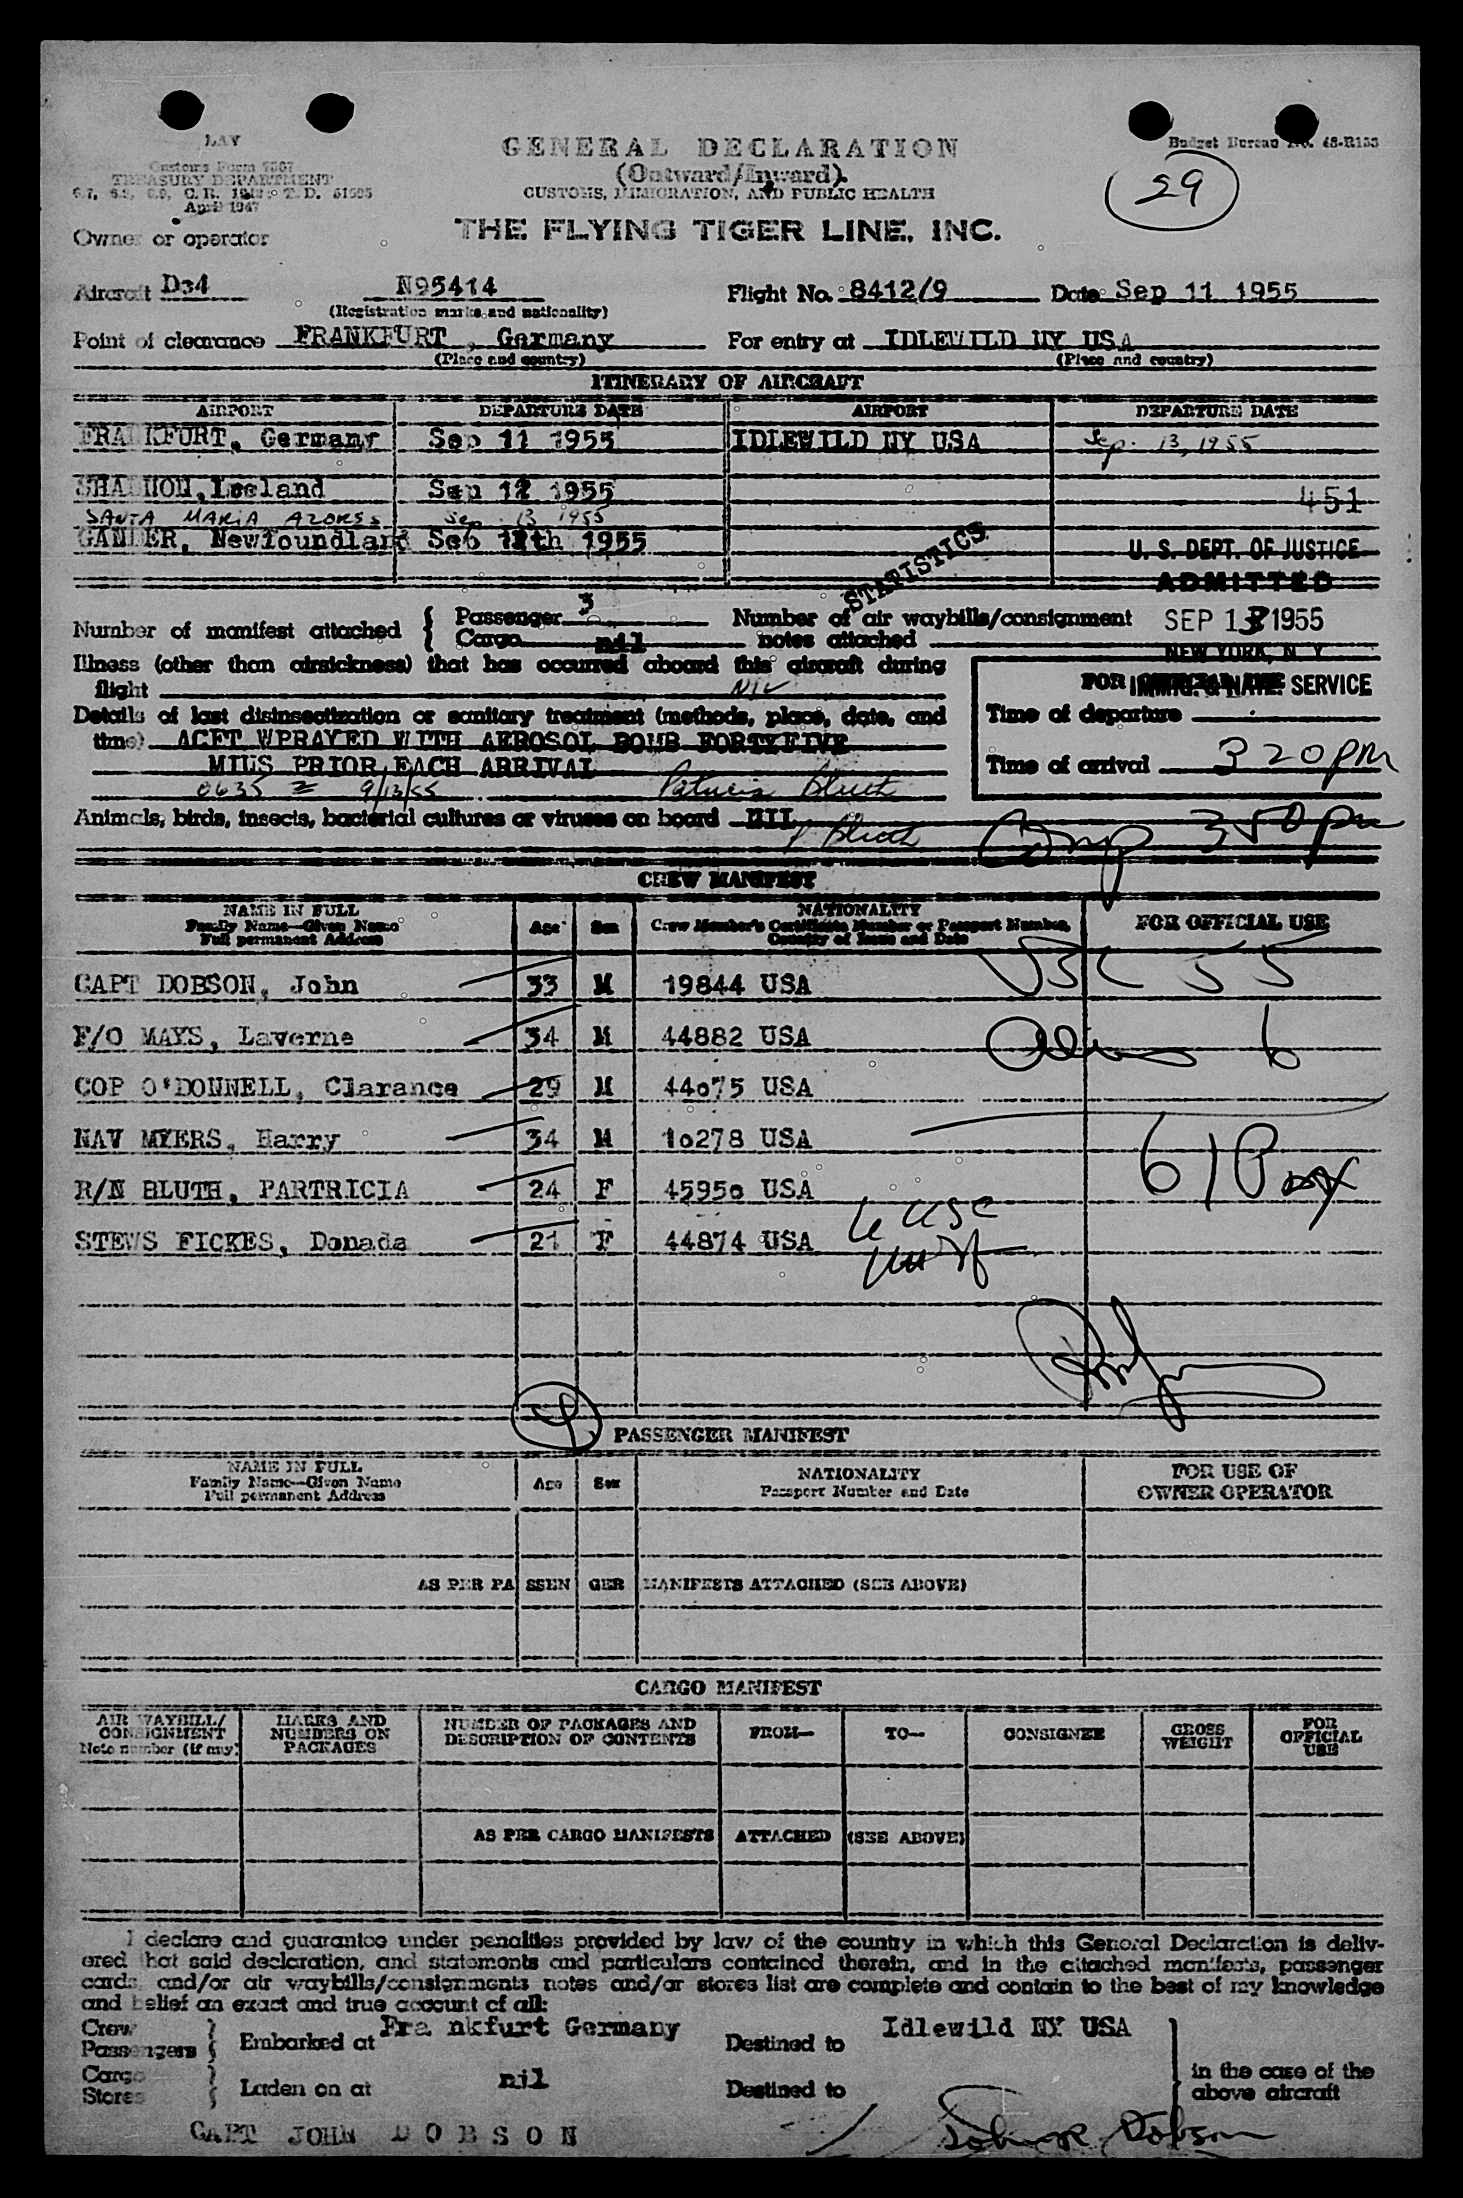 LAV
Customs Form 7507
TREASURY DEPARTMENT
6.7, 6.8, 6.9, C. R. 1943: T. D. 51595
April 1947
GENERAL DECLARATION
(Outward/Inward)
CUSTOMS, IMMIGRATION, AND PUBLIC HEALTH
Budget Bureau No. 48-R153
29
Owner or operator
THE FLYING TIGER LINE, INC.
Aircraft D34 N95414 Flight No. 8412/9 Date Sep 11 1955
(Registration marks and nationality)
Point of clearance FRANKFURT , Germany For entry at IDLEWILD NY USA
(Place and country) (Place and country)
ITINERARY OF AIRCRAFT
AIRPORT DEPARTURE DATE AIRPORT DEPARTURE DATE
FRANKFURT, Germany Sep 11 1955 IDLEWILD NY USA Sep. 13, 1955
SHANNON, Sep 12 1955 451
SANTA MARIA AZORES Sep 13 1955
GANDER, Newfoundland 1955
STATISTICS
U. S. DEPT. OF JUSTICE
ADMITTED
Number of manifest attached { Passenger 3 Number of air waybills/consignment SEP 13 1955
Cargo nil notes attached
NEW YORK, N. Y.
Illness (other than airsickness) that has occurred aboard this aircraft during
flight NIL
FOR OFFICIAL USE
IMMIG. & NATZ. SERVICE
Details of last disinsectization or sanitary treatment (methods, place, date, and
time) ACFT WPRAYED WITH AEROSOL BOMB FORTYFIVE
MINS PRIOR EACH ARRIVAL
0635 Z 9/13/55 Patricia Bluth
Time of departure
Time of arrival 320 pm
Animals, birds, insects, bacterial cultures or viruses on board NIL
P Bluth Comp 350 pm
CREW MANIFEST
NAME IN FULL
Family Name—Given Name
Full permanent Address
Age Sex
NATIONALITY
Crew Member's Certificate Number or Passport Number,
Country of Issue and Date
FOR OFFICIAL USE
CAPT DOBSON, John 33 M 19844 USA USC 55
F/O MAYS, Laverne 34 M 44882 USA Aliens 6
COP O'DONNELL, Clarance 29 M 44075 USA
NAV MYERS, Harry 34 M 10278 USA 61 Pax
R/N BLUTH, PARTRICIA 24 F 45950 USA
STEWS FICKES, Donada 21 F 44874 USA
6 USC
PASSENGER MANIFEST
NAME IN FULL
Family Name—Given Name
Full permanent Address
Age Sex
NATIONALITY
Passport Number and Date
FOR USE OF
OWNER OPERATOR
AS PER PASSENGER MANIFESTS ATTACHED (SEE ABOVE)
CARGO MANIFEST
AIR WAYBILL/
CONSIGNMENT
Note number (if any)
MARKS AND
NUMBERS ON
PACKAGES
NUMBER OF PACKAGES AND
DESCRIPTION OF CONTENTS
FROM—
TO—
CONSIGNEE
GROSS
WEIGHT
FOR
OFFICIAL
USE
AS PER CARGO MANIFESTS ATTACHED (SEE ABOVE)
I declare and guarantee under penalties provided by law of the country in which this General Declaration is deliv-
ered that said declaration, and statements and particulars contained therein, and in the attached manifests, passenger
cards, and/or air waybills/consignments notes and/or stores list are complete and contain to the best of my knowledge
and belief an exact and true account of all:
Crew
Passengers } Embarked at Fra nkfurt Germany Destined to Idlewild NY USA
Cargo
Stores } Laden on at nil Destined to
in the case of the
above aircraft
CAPT JOHN D O B S O N John R Dobson